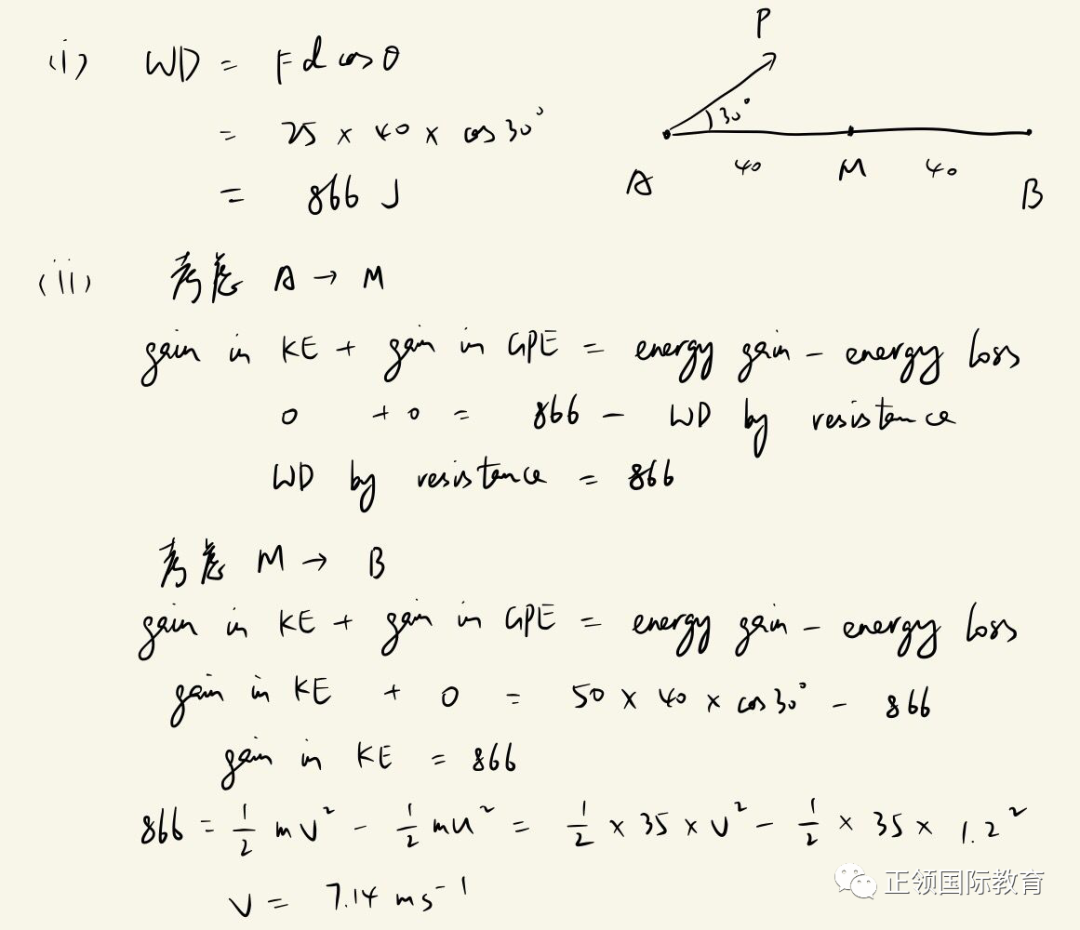 (i) WD = Fd cos θ
= 25 × 40 × cos 30°
= 866 J
P
30°
A 40 M 40 B
(ii) 考虑 A → M
gain in KE + gain in GPE = energy gain - energy loss
0 + 0 = 866 - WD by resistence
WD by resistence = 866
考虑 M → B
gain in KE + gain in GPE = energy gain - energy loss
gain in KE + 0 = 50 × 40 × cos 30° - 866
gain in KE = 866
866 = 1/2 mv² - 1/2 mu² = 1/2 × 35 × v² - 1/2 × 35 × 1.2²
v = 7.14 ms⁻¹
正领国际教育